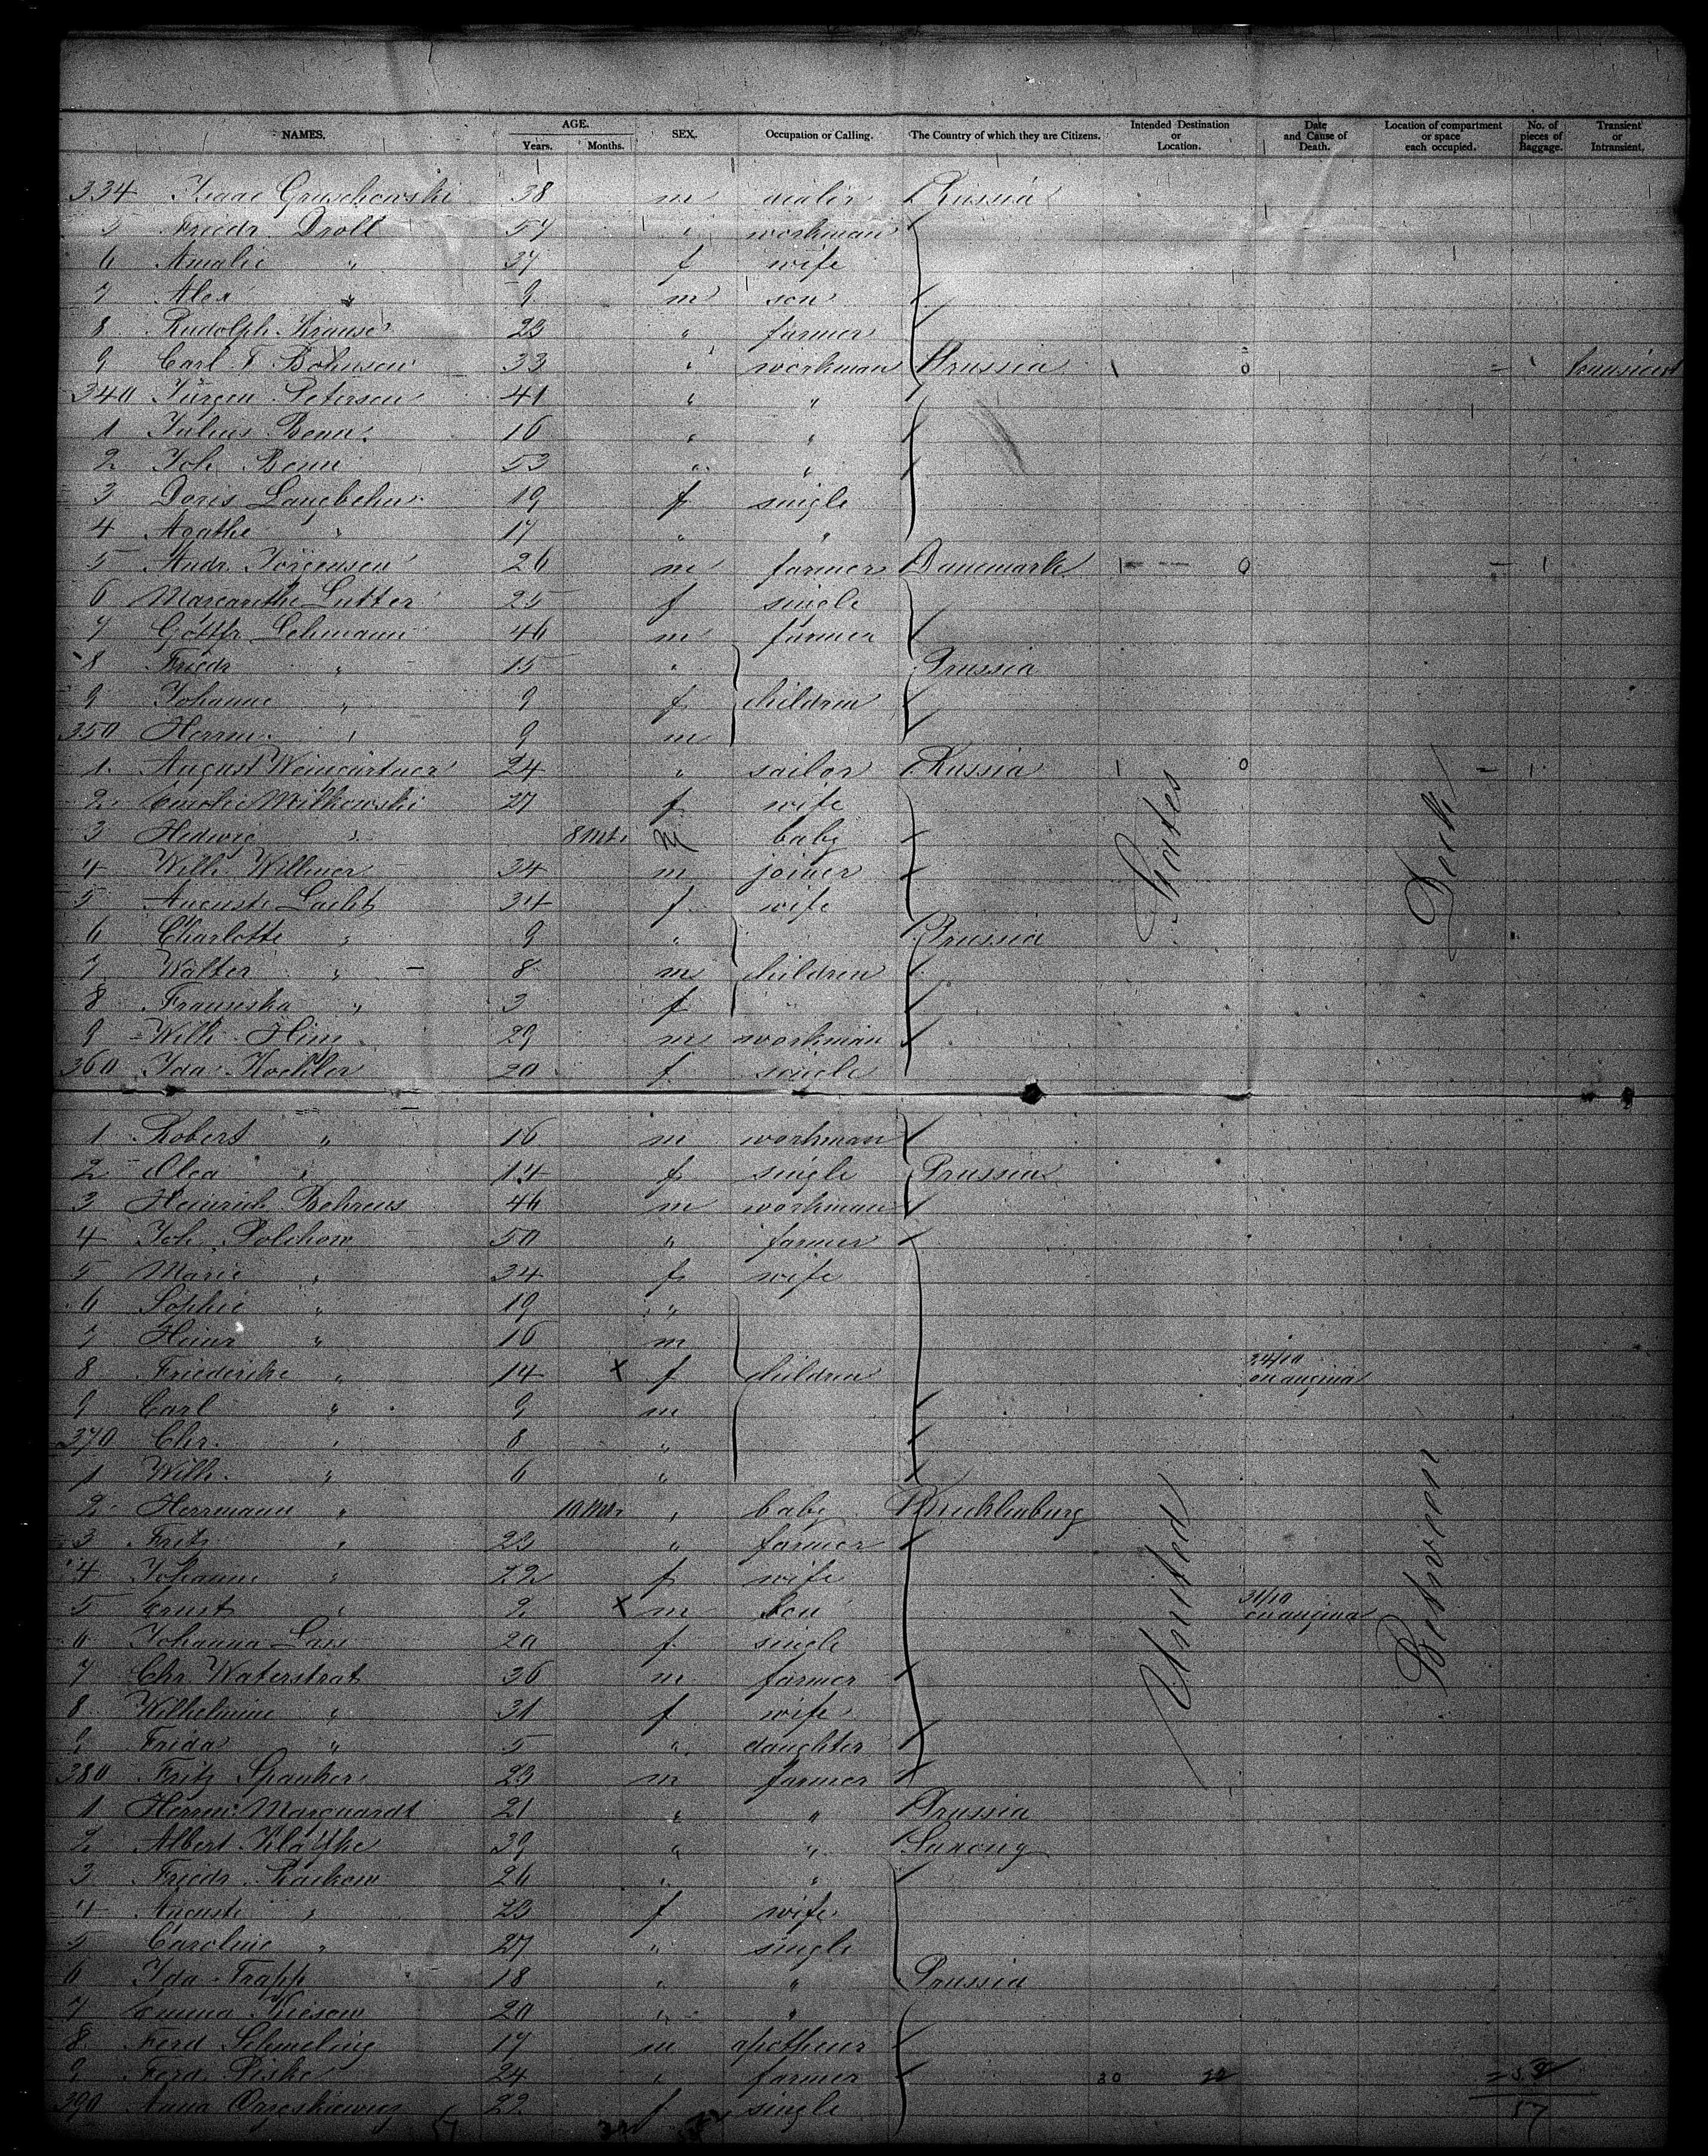 NAMES. AGE. Years. Months. SEX. Occupation or Calling. The Country of which they are Citizens. Intended Destination or Location. Date and Cause of Death. Location of compartment or space each occupied. No. of pieces of Baggage. Transient or Intransient.
334 Isaac Gruschowski 38 m Russia
5 Friedr. Droll 57 " workman
6 Amalie " 37 f wife
7 Alex " 9 m son
8 Rudolph Krause 23 " farmer
9 Carl F. Bohnsen 33 " workman Prussia 1 0 1 transient
340 Jürgen Petersen 41 " "
1 Julius Benn 16 " "
2 Joh. Benn 53 " "
3 Doris Langbehn 19 f single
4 Agathe " 17 " "
5 Andr. Jörgensen 26 m farmer Danemark 1 0 1
6 Margarethe Lutter 25 f single
7 Gottfr. Lehmann 46 m farmer
8 Friedr. " 15 " Prussia
9 Johanne " 9 f children
350 Herrm. " 9 m
1 August Weingärtner 24 " sailor Russia 1 0 1
2 Emilie Milkowski 27 f wife
3 Hedwig " 8 Mt. baby
4 Wilh. Willmer 34 m joiner
5 Auguste Lacht 34 f wife
6 Charlotte " 9 " Prussia
7 Walter " 8 m children
8 Franziska " 3 f
9 Wilh. 29 m workman
360 Ida Koehler 20 f single
1 Robert " 16 m workman
2 Olga " 14 f single Prussia
3 Heinrich Behrens 46 m workman
4 Joh. Polchow 50 " farmer
5 Marie " 34 f wife
6 Sophie " 19 "
7 Heinr. " 16 m
8 Friederike " 14 x f children 24/10 on angina
9 Carl " 9 m
370 Chr. " 8 "
1 Wilh. " 6 "
2 Herrmann " 10 Mt. " baby Mecklenburg
3 Fritz " 23 " farmer
4 Johanne " 22 f wife
5 Ernst " 2 x m son 31/10 on angina
6 Johanna 20 f single
7 Chr. Waterstrat 36 m farmer
8 Wilhelmine " 31 f wife
9 Frida " 5 " daughter
380 Fritz Spanker 23 m farmer
1 Herrm. Marquardt 21 " " Prussia
2 Albert 39 " " Saxony
3 Friedr. Rachow 26 " "
4 Auguste " 23 f wife
5 Caroline " 27 " single
6 Ida Trapp 18 " " Prussia
7 Emma Kiesow 20 " "
8 Ferd. Schmeling 17 m
9 Ferd. Piske 24 " farmer 30
390 Anna 22 f single 57
United States
Between Deck